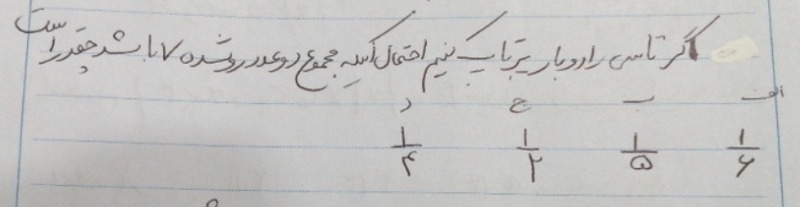 اگر تاسی را دو بار پرتاب کنیم احتمال آنکه مجموع دو عدد رو شده ۷ باشد چقدر است
الف ب ج د
۱/۶ ۱/۵ ۱/۲ ۱/۴